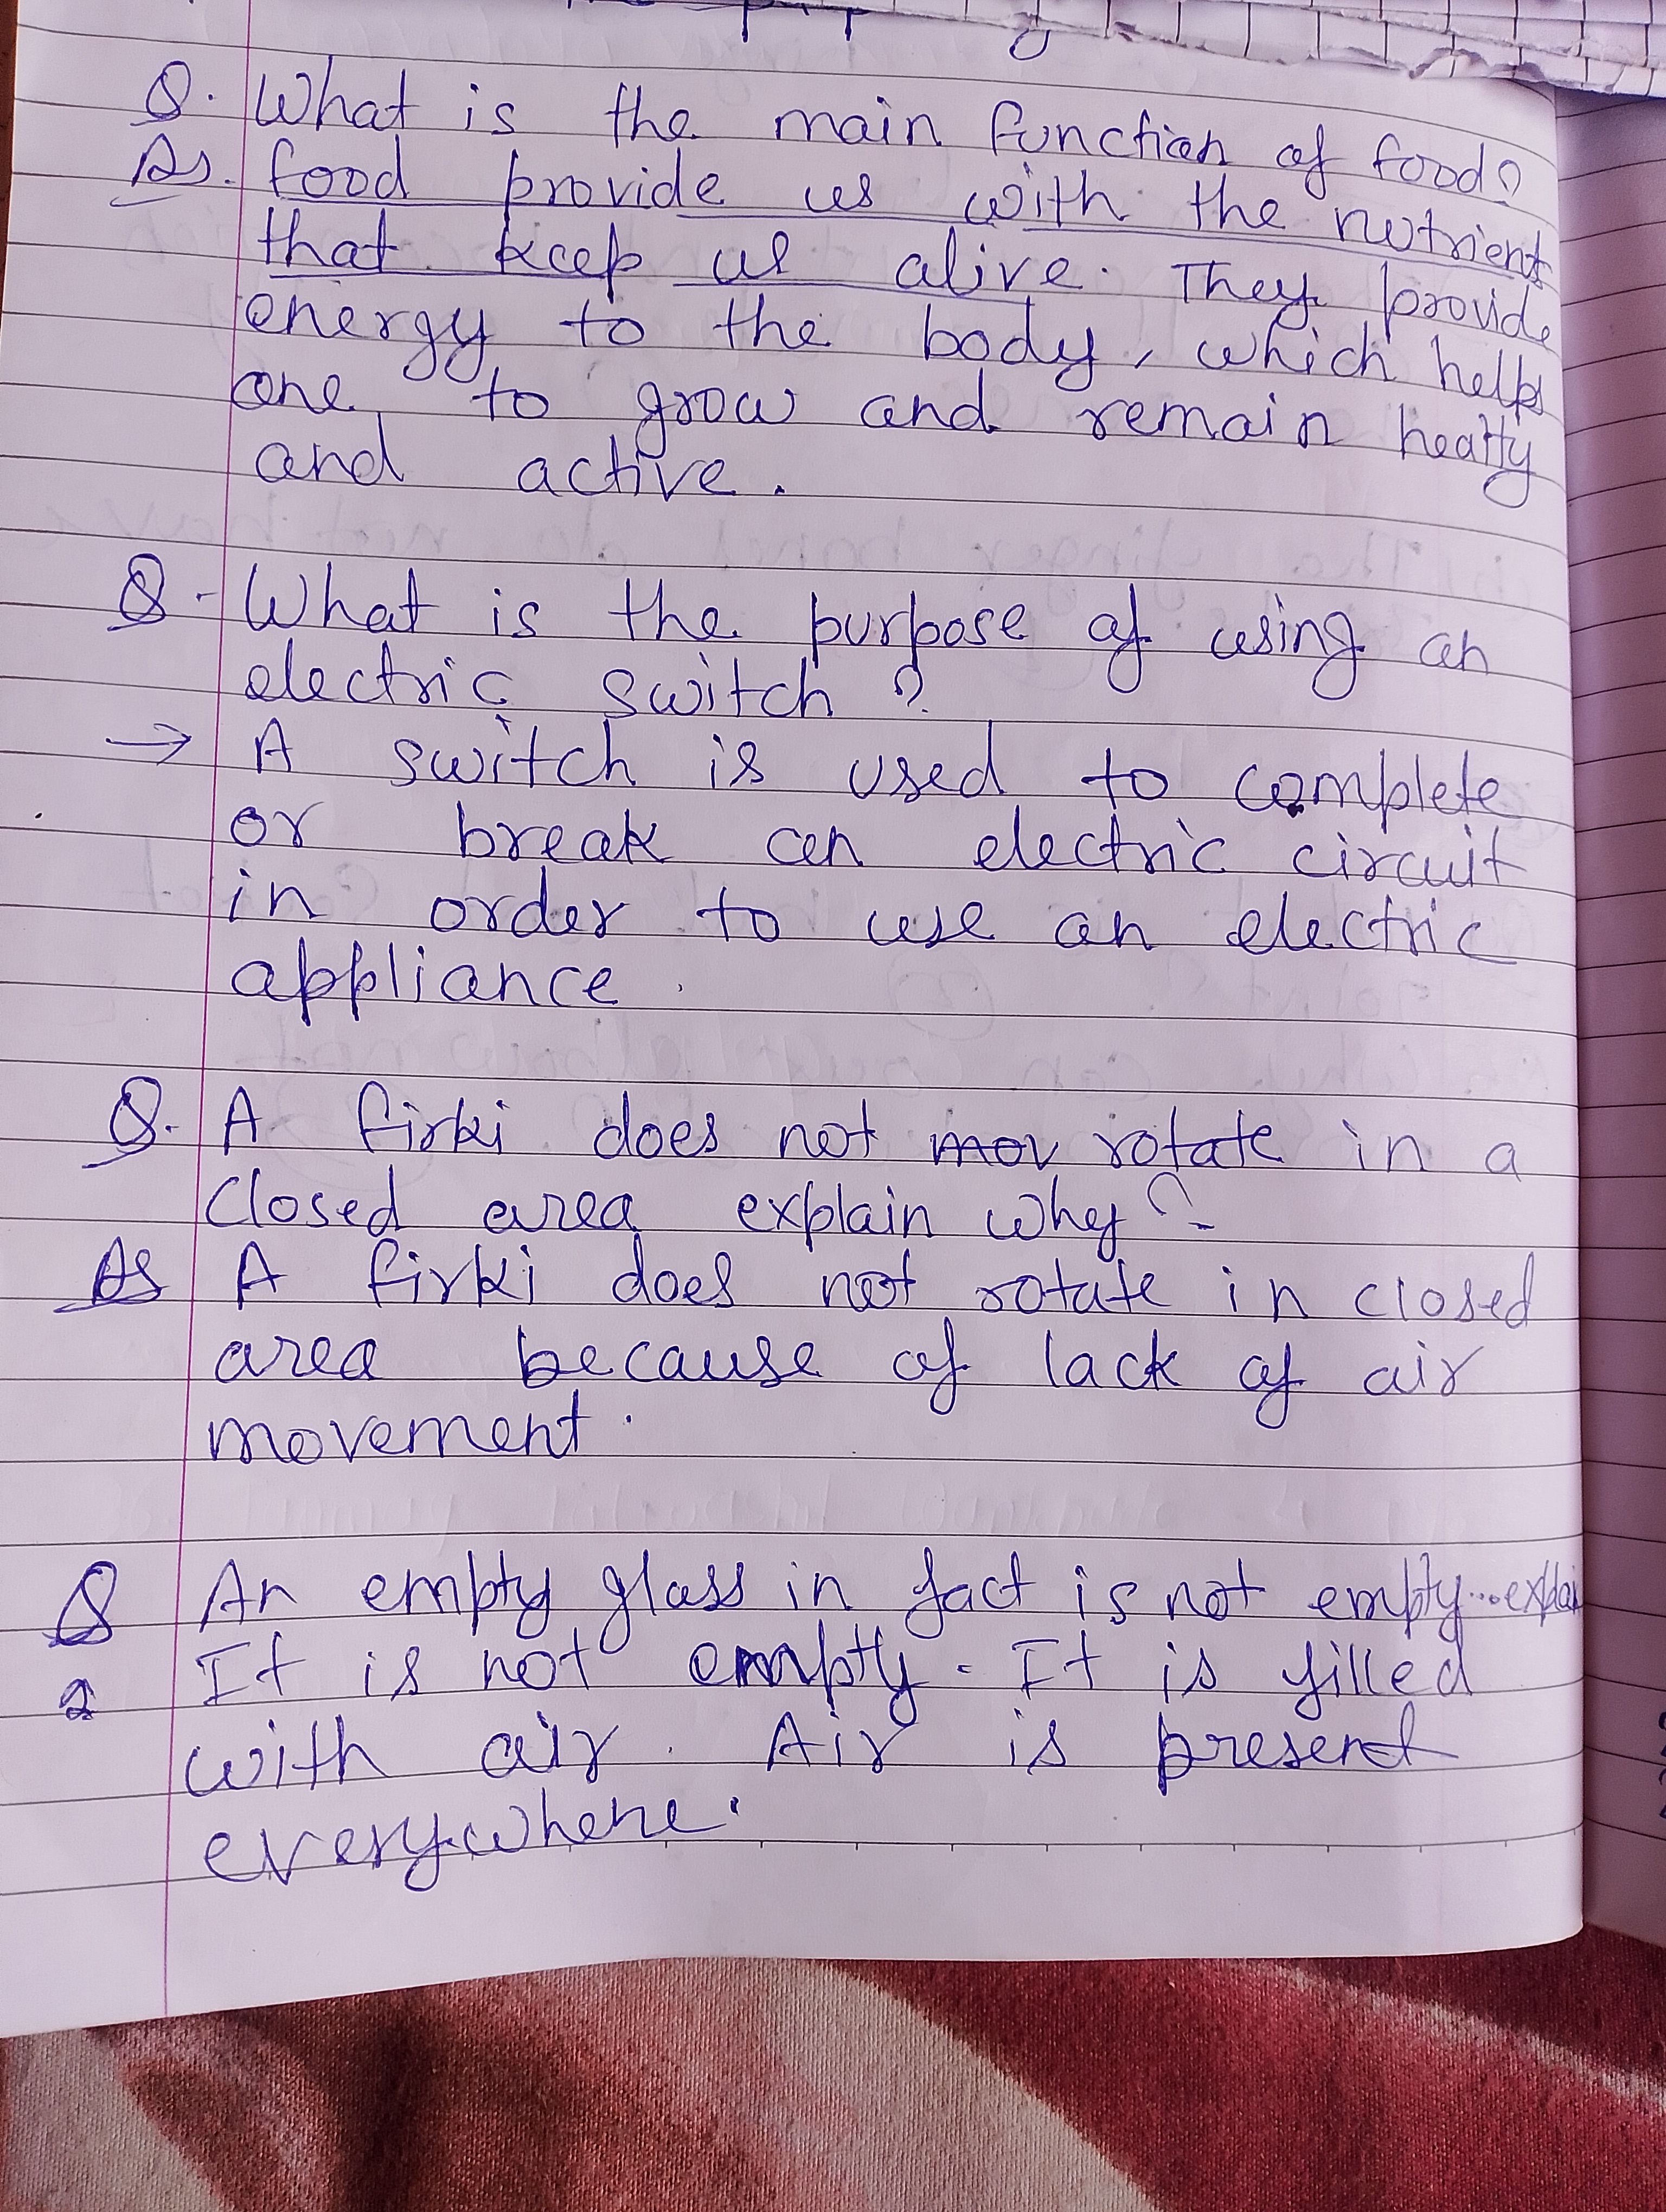 Q. What is the main function of food?
As. food provide us with the nutrient
that keep us alive. They provide
energy to the body, which helps
one to grow and remain
and active.
Q. What is the purpose of using an
electric switch ?
→ A switch is used to complete
or break an electric circuit
in order to use an electric
appliance.
Q. A firki does not mov rotate in a
closed area explain why?
As A firki does not rotate in closed
area because of lack of air
movement.
Q An empty glass in fact is not empty...explai
2 It is not empty. It is filled
with air. Air is present
everywhere.